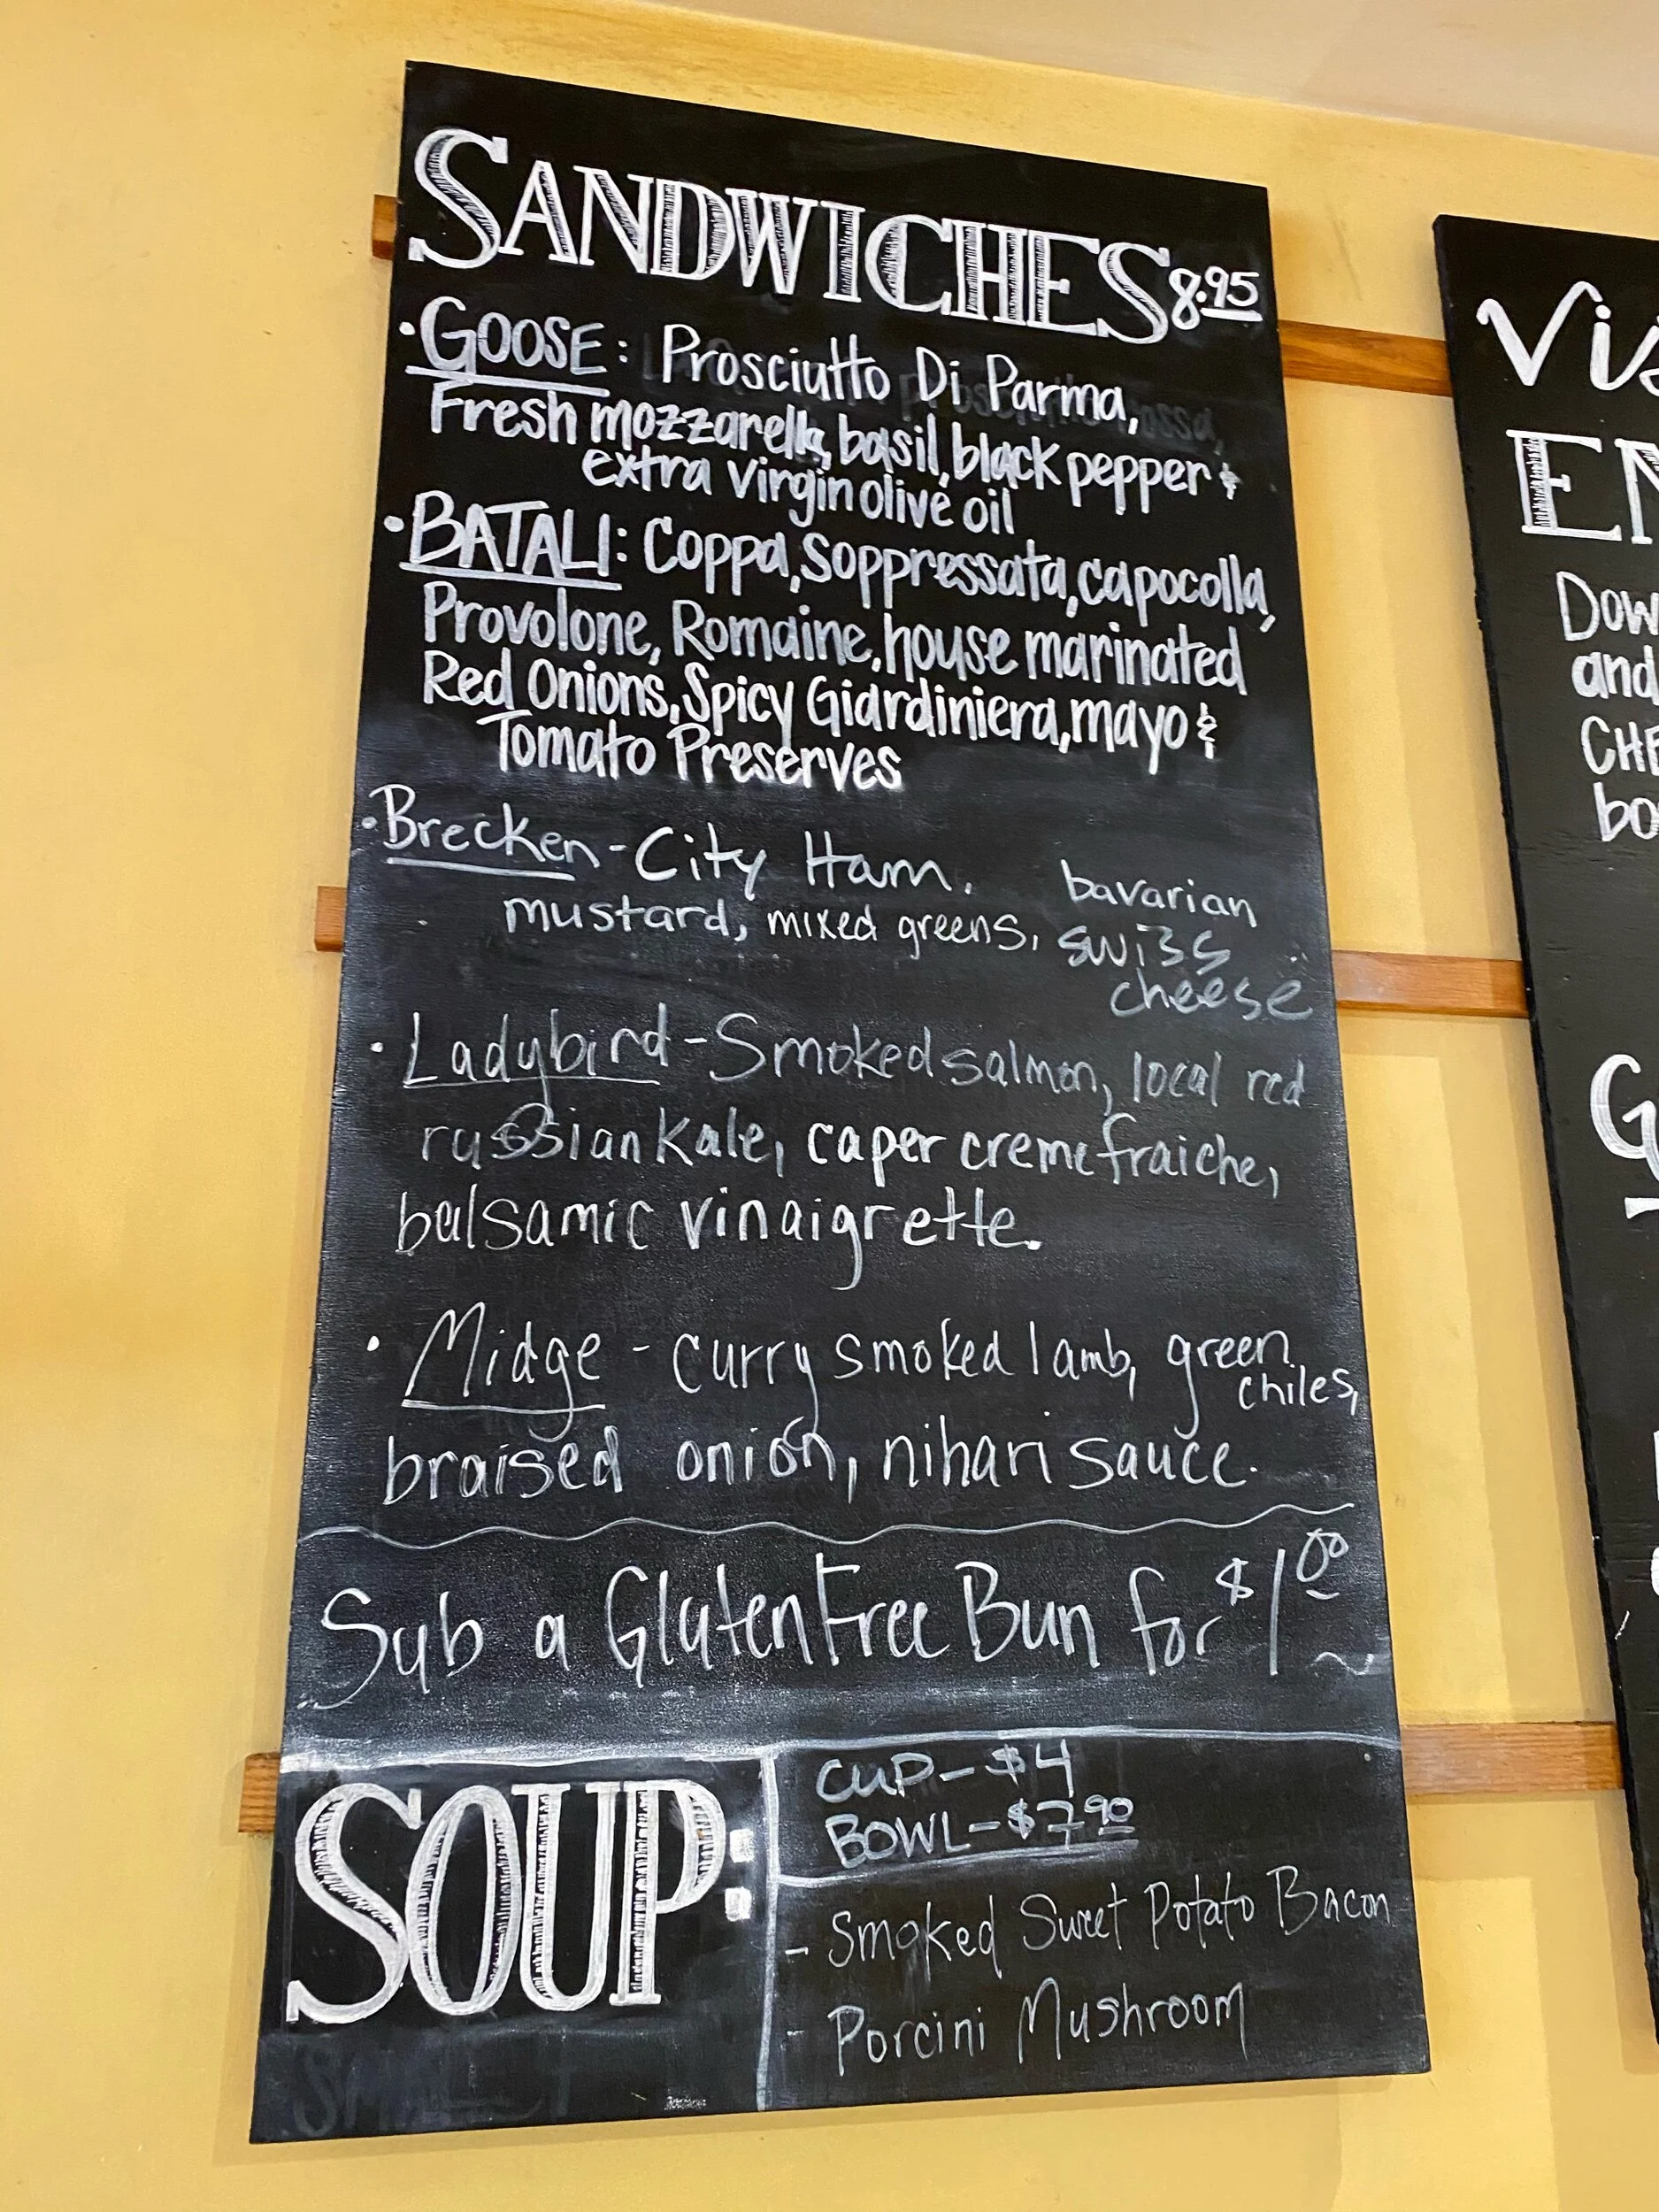 SANDWICHES 8.95
• GOOSE: Prosciutto Di Parma,
Fresh mozzarella, basil, black pepper &
extra virgin olive oil
• BATALI: Coppa, Soppressata, capocolla,
Provolone, Romaine, house marinated
Red Onions, Spicy Giardiniera, mayo &
Tomato Preserves
• Brecken - City Ham,
mustard, mixed greens,
bavarian
swiss
cheese
• Ladybird - Smoked salmon, local red
russian kale, caper creme fraiche,
balsamic vinaigrette.
• Midge - curry smoked lamb, green
chiles,
braised onion, nihari sauce.
Sub a Gluten Free Bun for $1.00
SOUP:
CUP - $4
BOWL - $7.90
- Smoked Sweet Potato Bacon
- Porcini Mushroom
and